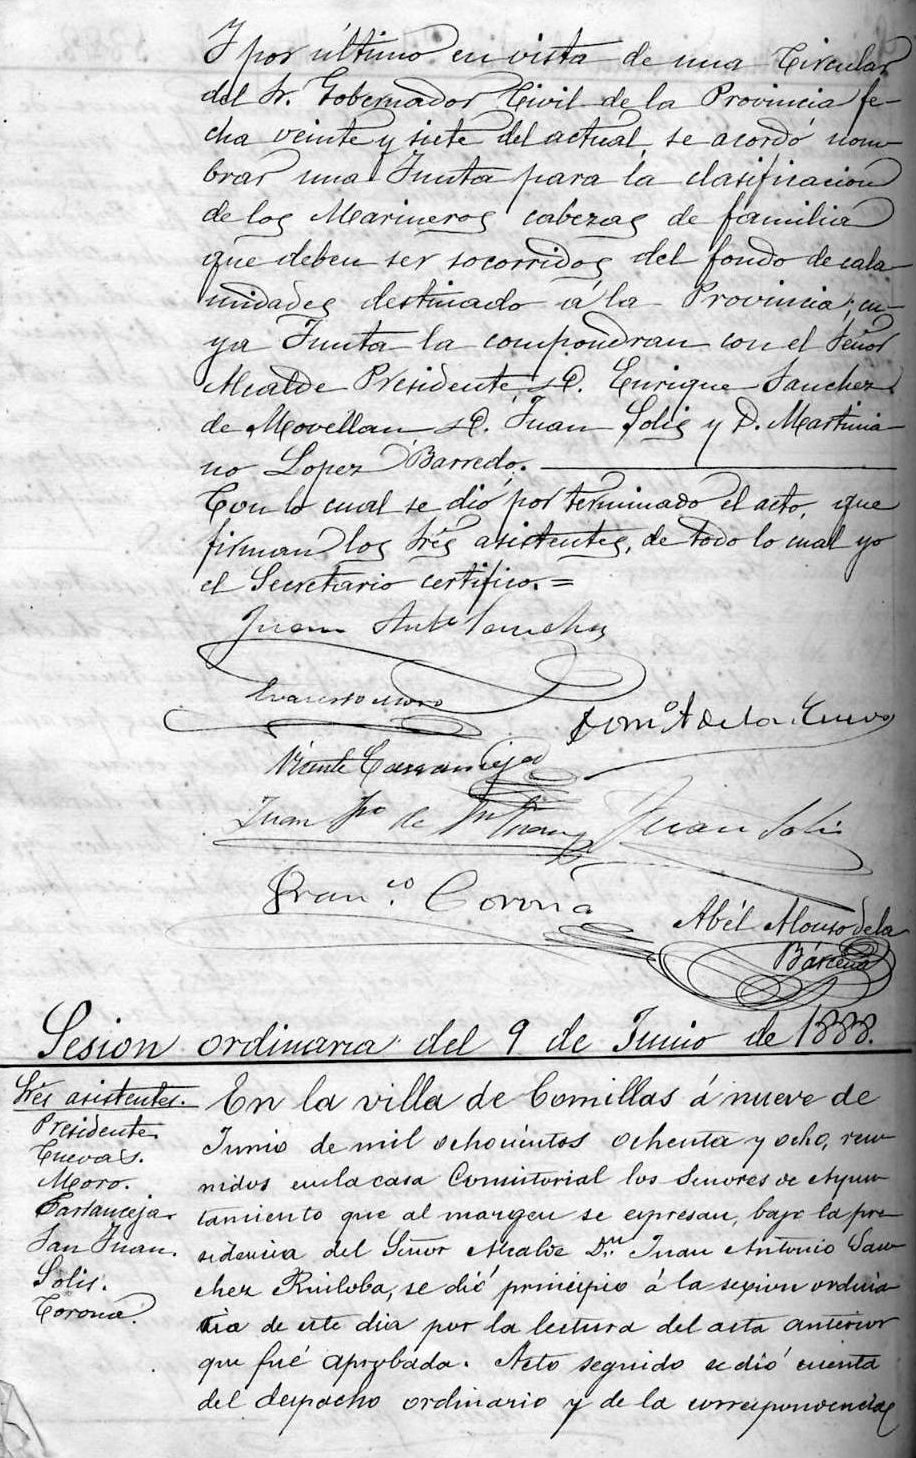 Y por último en vista de una Circular
del Sr. Gobernador Civil de la Provincia fe-
cha veinte y siete del actual, se acordó nom-
brar una Junta para la clasificacion
de los Marineros cabezas de familia
que deben ser socorridos del fondo de cala-
midades destinado á la Provincia; cu-
ya Junta la compondran con el Señor
Alcalde Presidente, D. Enrique Sanchez
de Movellan, D. Juan Solis y D. Martinia-
no Lopez Barredo.
Con lo cual se dió por terminado el acto, que
firman los Srés asistentes, de todo lo cual yo
el Secretario certifico. =
Juan Antº Sanchez
Evaristo Moro
Domº A de la Cueva
Vicente Carranceja
Juan de
Juan Solis
Franco Corona
Abél Alonso de la
Bárcena
Sesion ordinaria del 9 de Junio de 1888.
Srés asistentes.
Presidente.
Cuevas.
Moro.
Carranceja.
San Juan.
Solis.
Corona.
En la villa de Comillas á nueve de
Junio de mil ochocientos ochenta y ocho, reu-
nidos en la casa Consistorial los Señores de Ayun-
tamiento que al margen se espresan, bajo la pre-
sidencia del Señor Alcalde Dn. Juan Antonio San-
chez Ruiloba, se dió principio á la sesion ordina-
ria de este dia por la lectura del acta anterior
que fué aprobada. Acto seguido se dió cuenta
del despacho ordinario y de la correspondencia